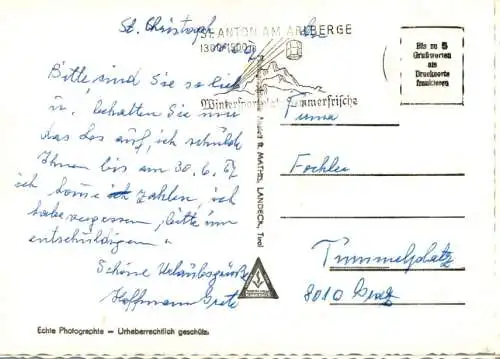 St. Christoph
ST. ANTON AM ARLBERGE
1300-1500 m
Wintersportplatz Sommerfrische
Bis zu 5
Grußworten
als
Drucksorte
frankieren
Bitte sind Sie so lieb
u. behalten Sie mir
das das auf, ich schulde
Ihnen bis am 30.6.67
ich kann zahlen, ich
habe vergessen, bitte um
entschuldigen"
Schöne Urlaubsgrüße
Hoffmann Grete
MATHIS, LANDECK, Tirol
Firma
Fochler
Tummelplatz
8010 Graz
Echte Photographie — Urheberrechtlich geschütz.